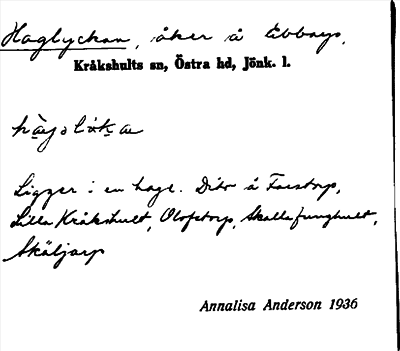 Haglyckan, åker å Ebbarp.
Kråkshults sn, Östra hd, Jönk. l.
Ligger i en hage. Dito å Farstorp,
Lilla Kråkshult, Olofstorp, Skallefunghult,
Skäljarp
Annalisa Anderson 1936